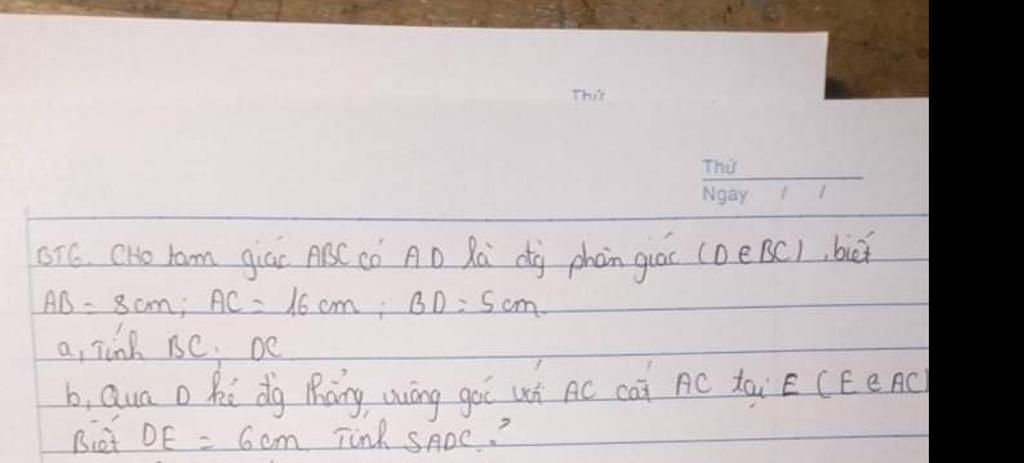 Thứ
Thứ
Ngày / /
BT6. CHO tam giác ABC có AD là đg phân giác (D ∈ BC), biết
AB = 8cm; AC = 16 cm; BD = 5cm.
a, Tính BC; DC
b, Qua D kẻ đg thẳng vuông góc với AC cắt AC tại E (E ∈ AC)
Biết DE = 6cm. Tính SADC.?